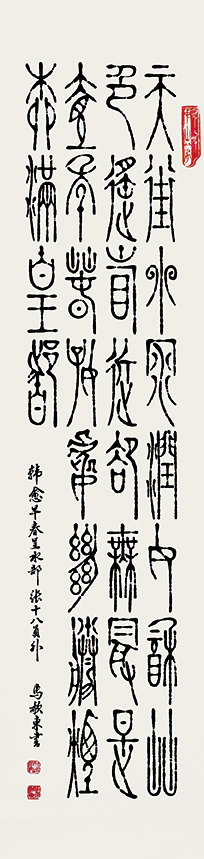 天街小雨潤如酥艸
色遙看近卻無最是
壹年春好處絕勝煙
柳滿皇都
韓愈早春呈水部張十八員外
東書